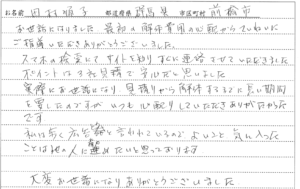 お名前 田村順子 都道府県 群馬県 市区町村 前橋市
お世話になりました 最初の解体費用の心配からていねいに
ご指導いただきありがとうございました。
スマホの検索にてサイトを知りすぐに連絡させていただきました
ポイントは3社見積で良いと思いました
実際にお世話になり、見積りから解体するまでに長い期間
を要したのですがいつも心配りしていただきありがたかった
です
私は歩く広告等と言われているのでよいこと気に入った
ことは他の人に薦めたいと思っております
大変お世話になりありがとうございました